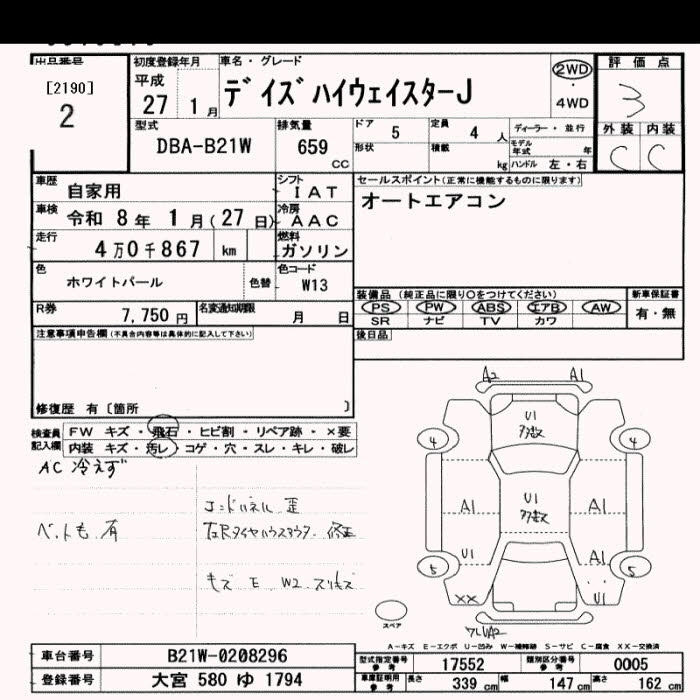 出品番号
[2190]
2
初度登録年月
平成
27 1月
車名・グレード
デイズハイウェイスターJ
2WD
・
4WD
評価点
3
外装 内装
C C
型式
DBA-B21W
排気量
659
CC
ドア 5
定員 4 人
ディーラー・並行
形状
積載 kg
モデル年式 年
ハンドル 左・右
車歴 自家用
シフト
IAT
車検 令和 8年 1月(27日)
冷房
AAC
走行 4万0千867 km
燃料
ガソリン
色 ホワイトパール
色替
色コード
W13
R券 7,750円
名変通知期限 月 日
セールスポイント(正常に機能するものに限ります)
オートエアコン
装備品 (純正品に限り○をつけてください)
PS PW ABS エアB AW
SR ナビ TV カワ
新車保証書
有・無
後日品
注意事項申告欄(不具合内容等は具体的に記入して下さい)
修復歴 有〔箇所 〕
検査員記入欄
FW キズ・飛石・ヒビ割・リペア跡・×要
内装 キズ・汚レ・コゲ・穴・スレ・キレ・破レ
AC 冷えず
有
歪
修正
キズ E W2
A2 A1
U1
4 4
A1 U1 A1
U1 A1
5 5
XX U1
スペア
A-キズ E-エクボ U-凹み W-補修跡 S-サビ C-腐食 XX-交換済
車台番号 B21W-0208296
登録番号 大宮 580 ゆ 1794
型式指定番号 参考 17552
類別区分番号 参考 0005
車庫証明用 参考 長さ 339 cm 幅 147 cm 高さ 162 cm